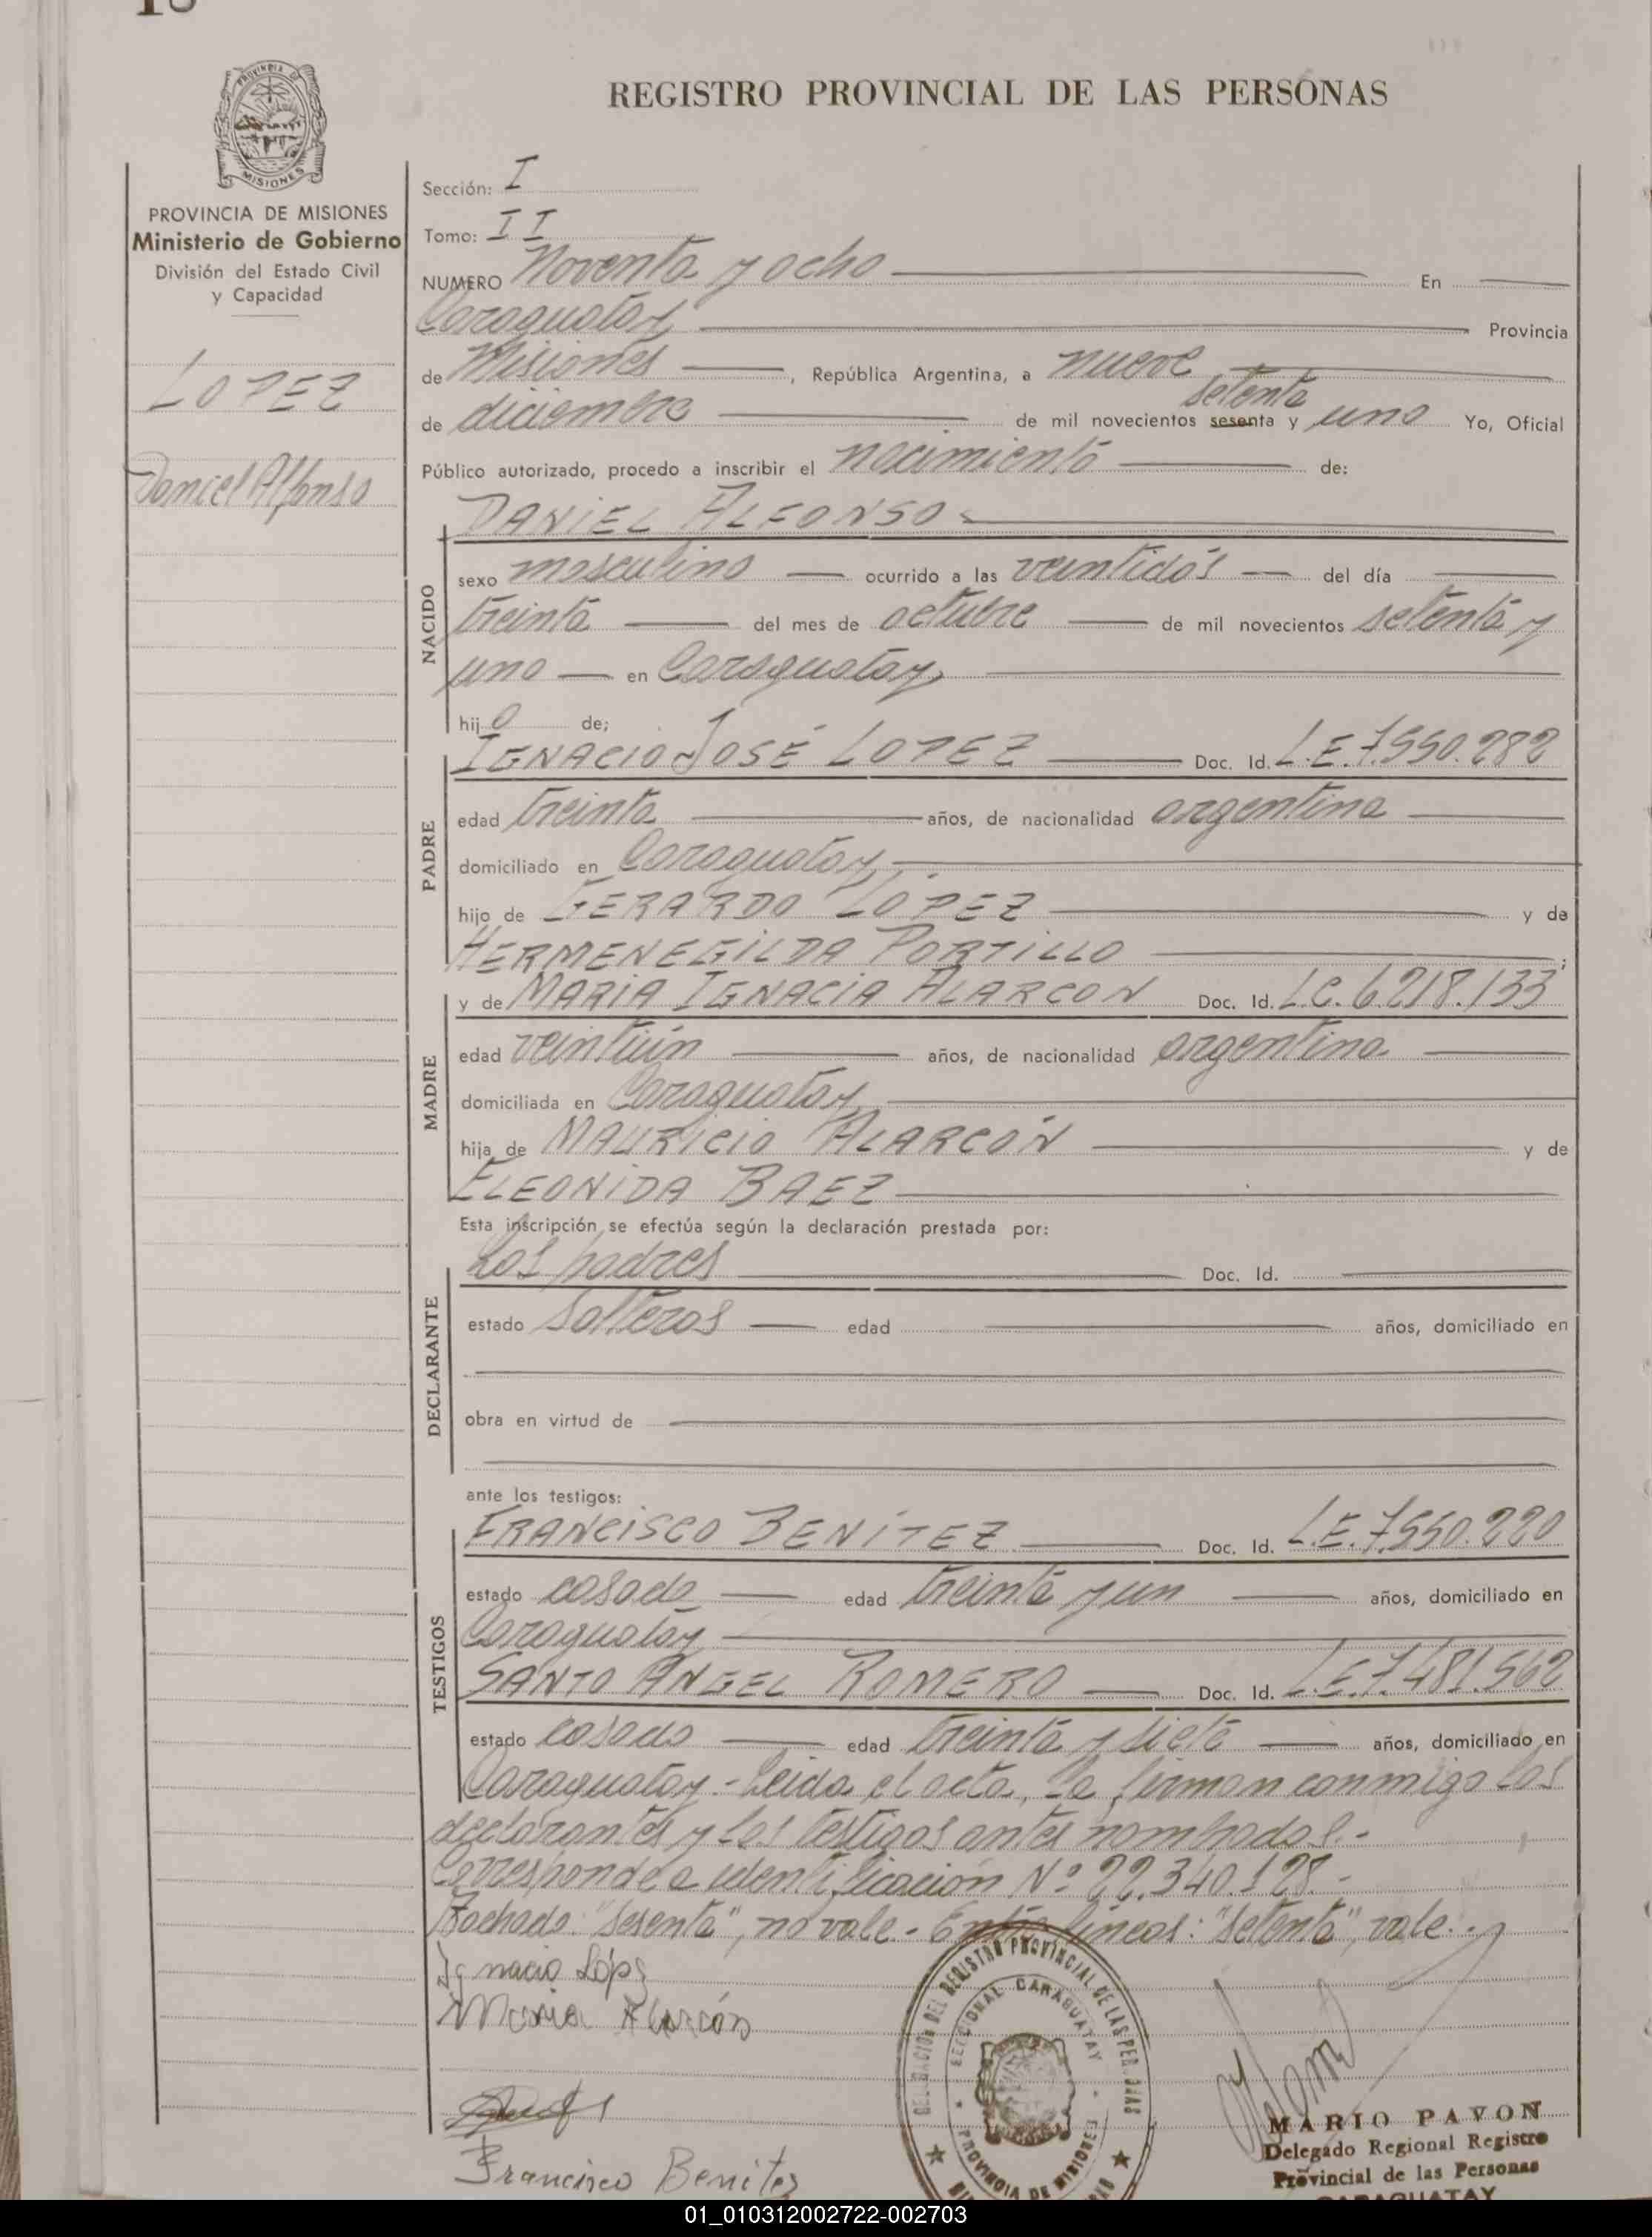 REGISTRO PROVINCIAL DE LAS PERSONAS
MISIONES
PROVINCIA DE MISIONES
Ministerio de Gobierno
División del Estado Civil
y Capacidad
LOPEZ
Daniel Alfonso
Sección: I
Tomo: II
NUMERO Noventa y ocho En
Caraguatay Provincia
de Misiones, República Argentina, a nueve
setenta
de diciembre de mil novecientos sesenta y uno Yo, Oficial
Público autorizado, procedo a inscribir el nacimiento de:
DANIEL ALFONSO
NACIDO
sexo masculino ocurrido a las veintidós del día
treinta del mes de octubre de mil novecientos setenta y
uno en Caraguatay
hijo de;
PADRE
IGNACIO JOSÉ LOPEZ Doc. Id. L.E. 7.550.282
edad treinta años, de nacionalidad argentina
domiciliado en Caraguatay
hijo de GERARDO LÓPEZ y de
HERMENEGILDA PORTILLO ;
MADRE
y de MARIA IGNACIA ALARCON Doc. Id. L.C. 6.218.133
edad veintiún años, de nacionalidad argentina
domiciliada en Caraguatay
hija de MAURICIO ALARCÓN y de
ELEONIDA BAEZ
Esta inscripción se efectúa según la declaración prestada por:
DECLARANTE
Los padres Doc. Id.
estado solteros edad años, domiciliado en
obra en virtud de
ante los testigos:
TESTIGOS
FRANCISCO BENÍTEZ Doc. Id. L.E. 7.550.220
estado casado edad treinta y un años, domiciliado en
Caraguatay
SANTO ANGEL ROMERO Doc. Id. L.E. 7.481.562
estado casado edad treinta y siete años, domiciliado en
Caraguatay.- Leida el acta, la firman conmigo los
declarantes y los testigos antes nombrados.-
Corresponde a identificación Nº 22.340.128.-
Tachado: "sesenta", no vale.- Entre líneas: "setenta", vale.-
Ignacio Lópz
Maria Alarcón
Francisco Benitez
DELEGACION DEL REGISTRO PROVINCIAL DE LAS PERSONAS
SECCIONAL CARAGUATAY
PROVINCIA DE MISIONES
MARIO PAVON
Delegado Regional Registro
Provincial de las Personas
CARAGUATAY
01_010312002722-002703